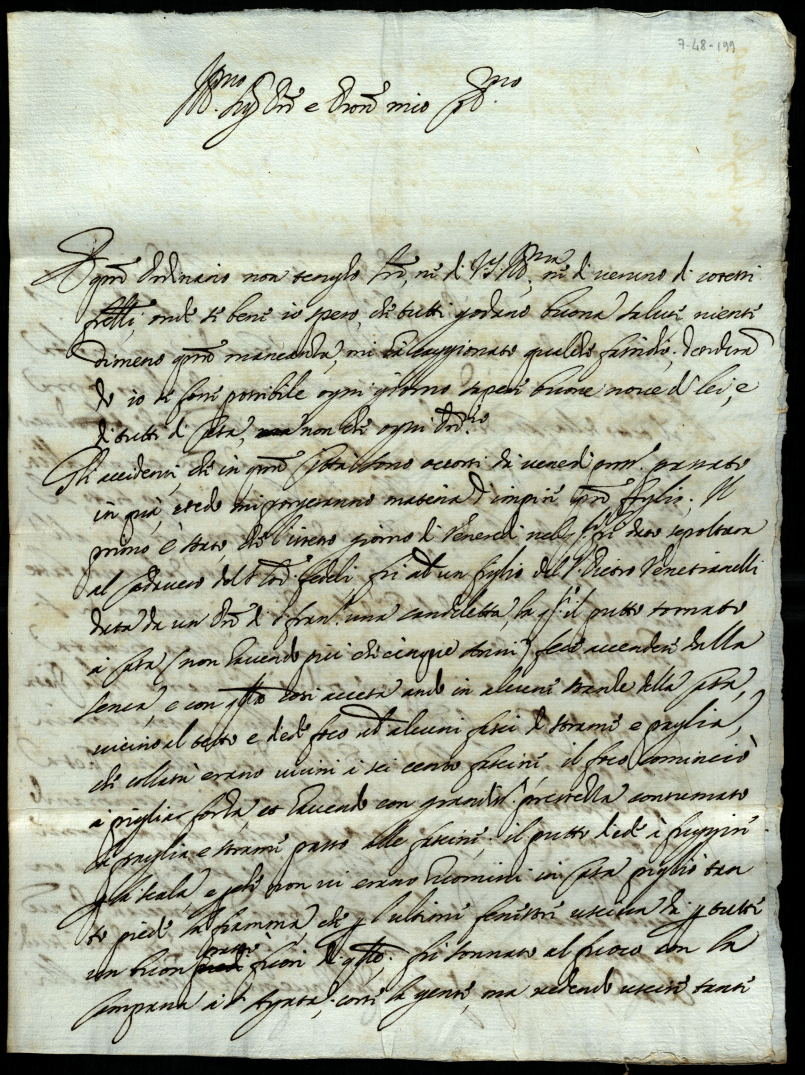 7-48-199
Ill.mo Sig.r e Pron mio
questo ordinario non tengo di V.S. Ill.ma, ne di veruno di cotesti
fratelli, onde se bene io spero, che tutti godano buona salute, niente
dimeno questa mancanza, mi ha caggionato qualche fastidio
io se fosse possibile ogni giorno sapere buone nove di lei, e
di tutti di casa, non che ogni ord.rio
Gli accidenti, che in questa Città sono occorsi da venerdi pross. passato
in quà, credo mi porgeranno materia d'impire questo foglio. Il
primo è stato, che l'istesso giorno di Venerdi nel dare sepoltura
al del Fedeli, fù ad un figlio del S. Pietro Venetianelli
data da un di S. fran.o una candeletta, la q.le il putto tornato
a casa (non havendo più che cinque anni) fece accendere dalla
serva, e con q.lla così accesa andò in alcune stanze della casa,
vicino al tetto e diede foco ad alcuni fasci di strame e paglia,
che erano vicini a sei cento fascine, il foco cominciò
a pigliar forza, et havendo con grandis.a prestezza consumato
la paglia e strame passò alle fascine; il putto diede à fuggire
p. la scala e p.che non vi erano huomini in casa pigliò tan
to piede la fiamma che p. l'ultime fenestre usciva da p. tutto
un buon pezzo fuori di q.lle. fù sonnato al fuoco con la
campana a S. Agata, corse la gente, ma vedendo uscire tante